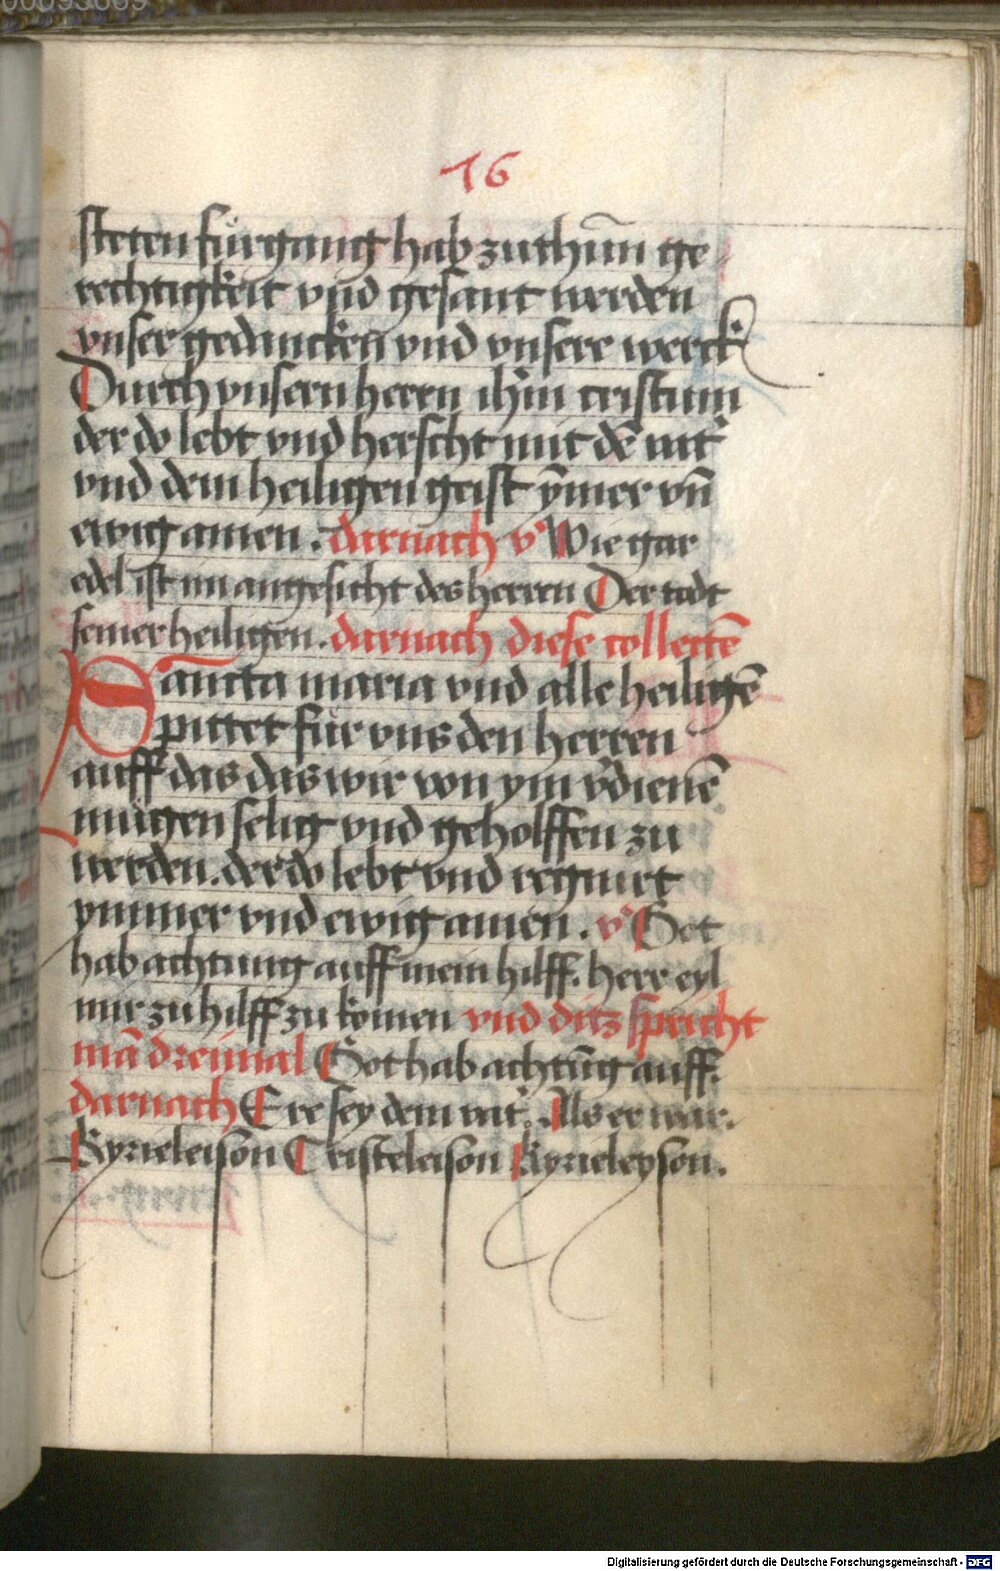 16
steten fürgang hab zuthun̄ ge
rechtigkeit vnd gesant werden
vnser geduncken vnd vnsere werck
Durch vnsern herrn ih̄m cristum
der do lebt vnd herscht mit dē vat'
vnd dem heiligen geist ȳmer vn̄
ewig amen . darnach v' Wie gar
edel ist im angesicht des herren Der todt
seiner heiligen . darnach diese collectē
Sancta maria vnd alle heiligē
pittet für vns den herren
auff das das wir von ym v'dienē
mügen selig vnd geholffen zu
werden . der do lebt vnd regnirt
ymmer vnd ewig amen . v' Got
hab achtung auff mein hilff . herr eyl
mir zu hilff zu komen vnd ditz spricht
mā dreimal Got hab achtūg auff .
darnach Ere sey dem vat' . Als er war .
Kyrieleison Cristeleison Kyrieleyson .
Digitalisierung gefördert durch die Deutsche Forschungsgemeinschaft - DFG